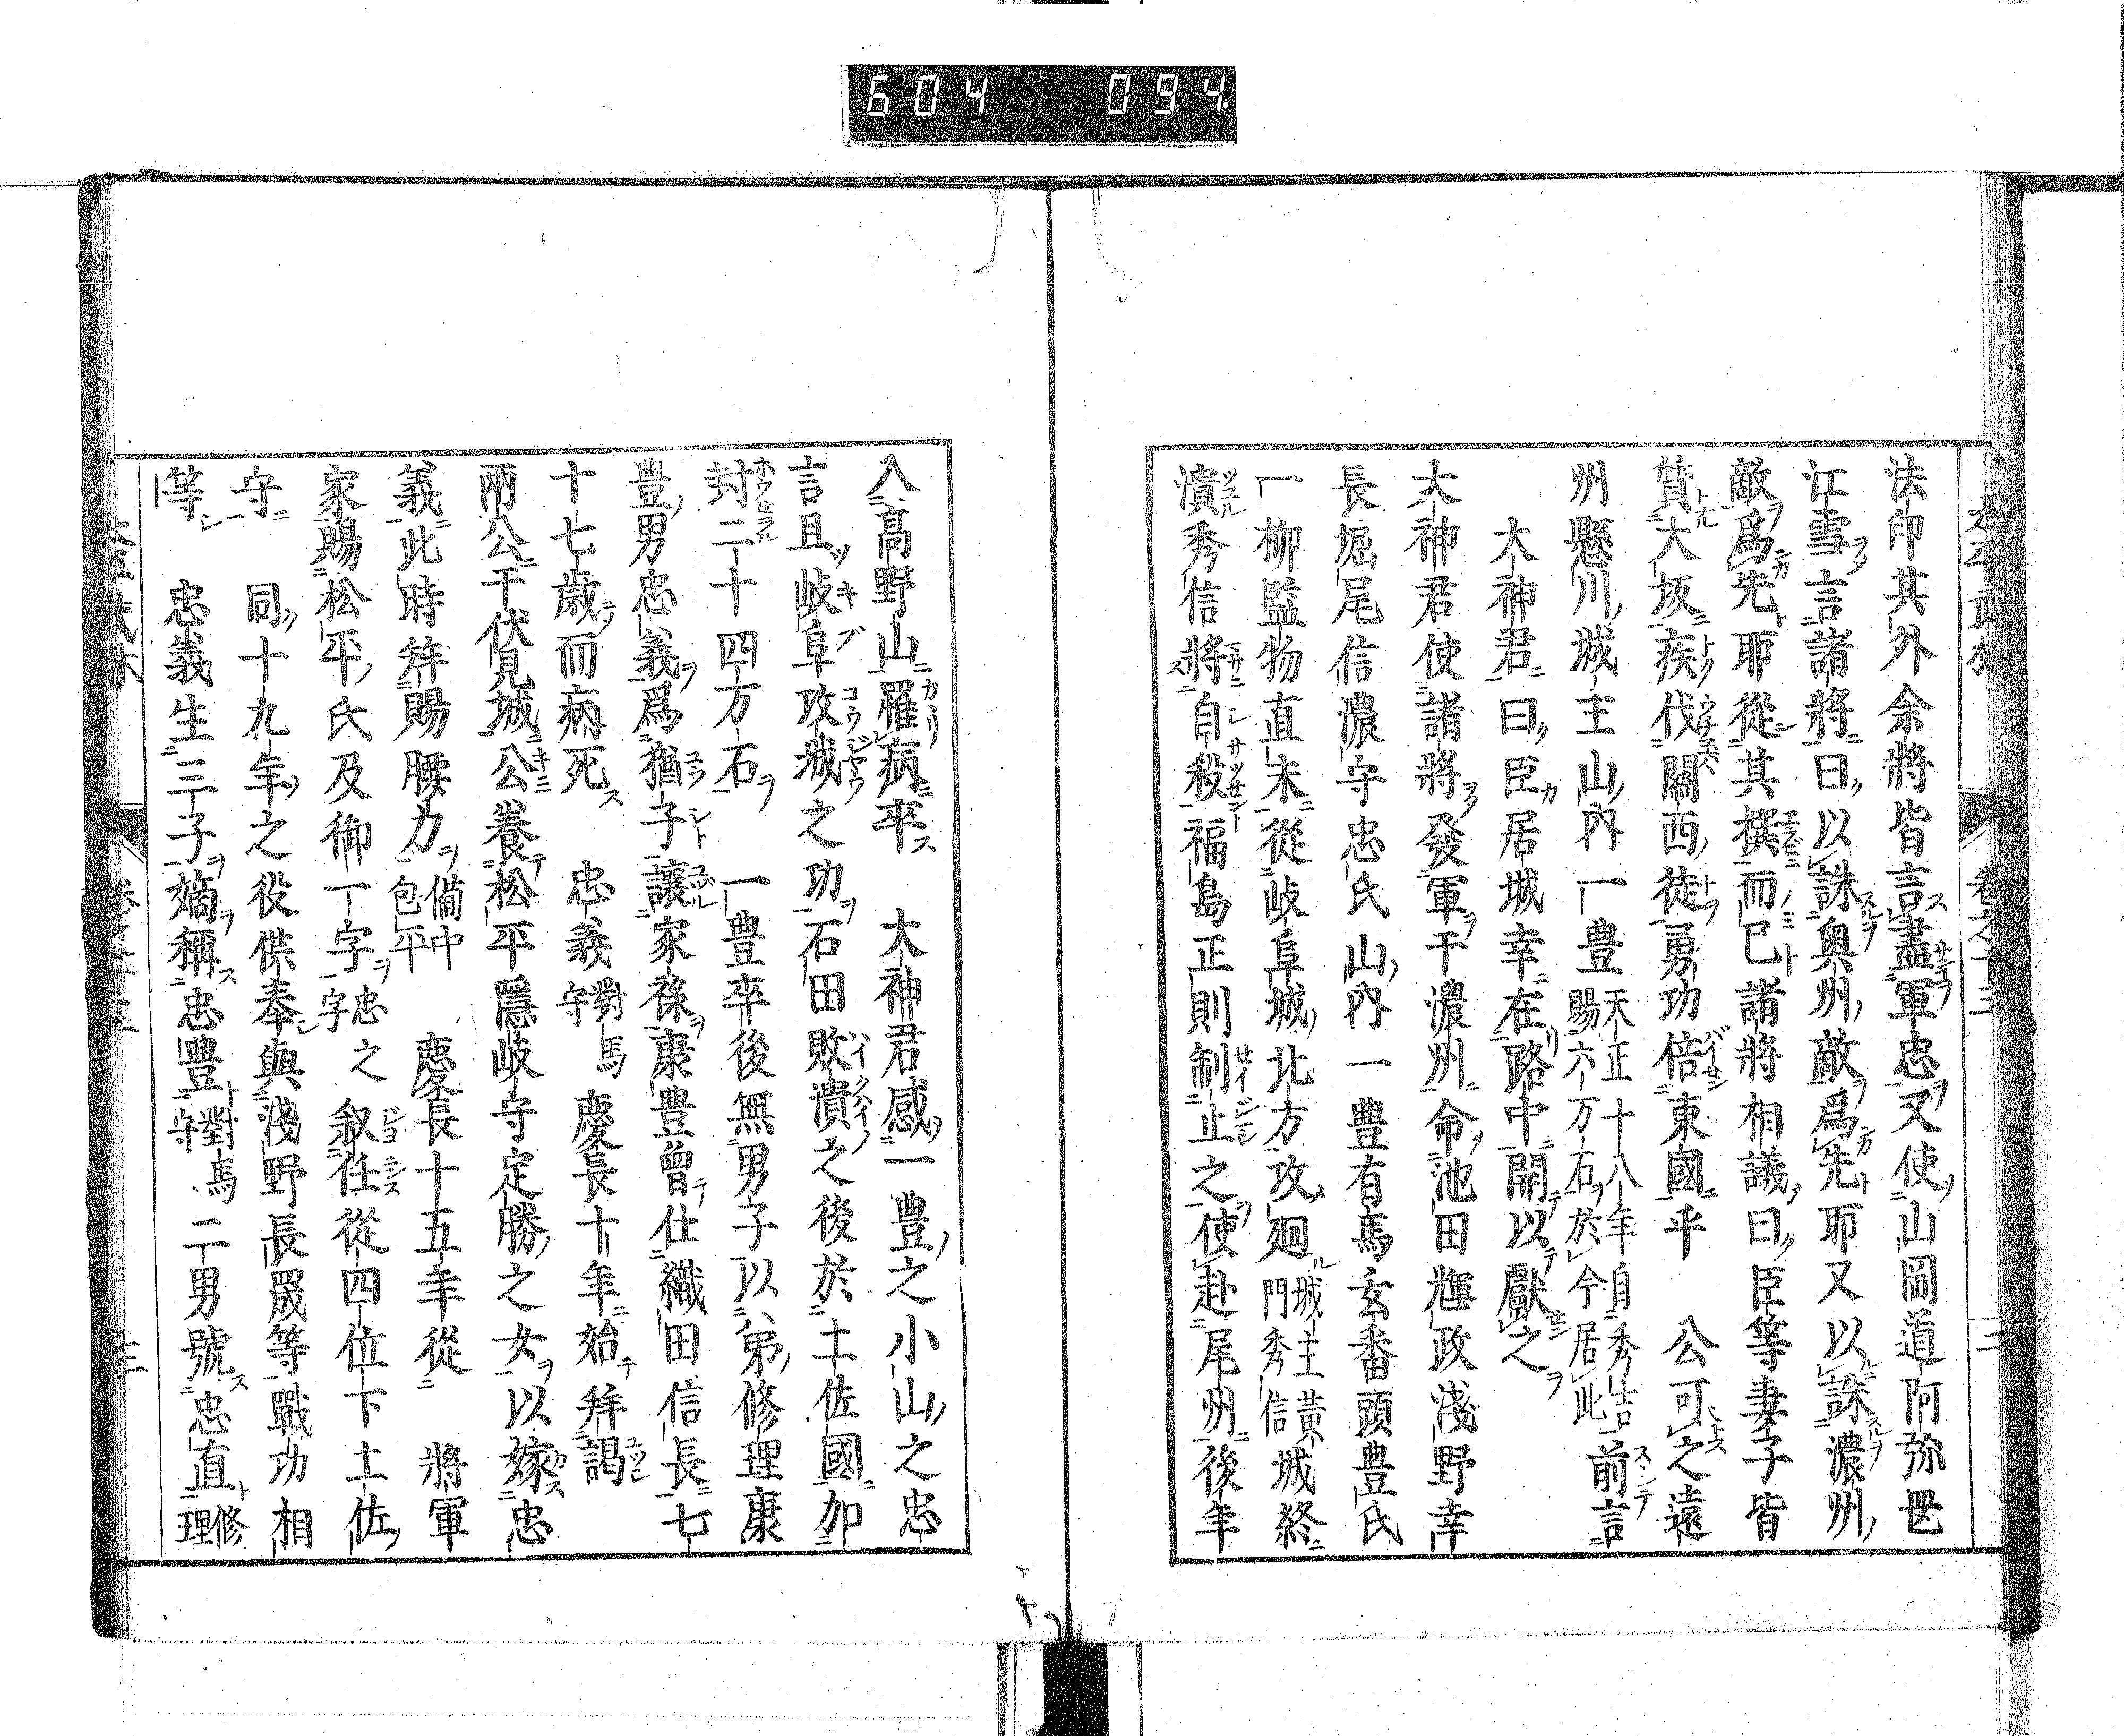 604 094
法印其外余將皆言盡軍忠又使山岡道阿弥岊
江雪言諸將曰以誅奥州敵爲先耶又以誅濃州
敵爲先耶從其撰而已諸將相議曰臣等妻子皆
質大坂疾伐關西徒勇功倍東國乎　公可之遠
州懸川城主山内一豊天正十八年自秀吉賜六万石於今居此前言
大神君曰臣居城幸在路中開以獻之
大神君使諸將發軍于濃州命池田輝政淺野幸
長堀尾信濃守忠氏山内一豊有馬玄番頭豊氏
一柳監物直末從岐阜城北方攻廻城主黄門秀信城終
潰秀信將自殺福島正則制止之使赴尾州後年
入髙野山罹病卒　大神君感一豊之小山之忠
言且岐阜攻城之功石田敗潰之後於土佐國加
封二十四万石　一豊卒後無男子以弟修理康
豊男忠義爲猶子讓家祿康豊曾仕織田信長七
十七歳而病死　忠義對馬守慶長十年始拜謁
兩公于伏見城公養松平隱岐守定勝之女以嫁忠
義此時拜賜腰刀備中包平　慶長十五年從　將軍
家賜松平氏及御一字忠之字叙任從四位下土佐
守　同十九年之役供奉與淺野長晟等戰功相
等　忠義生三子嫡稱忠豊對馬守二男號忠直修理
卷之十三
二